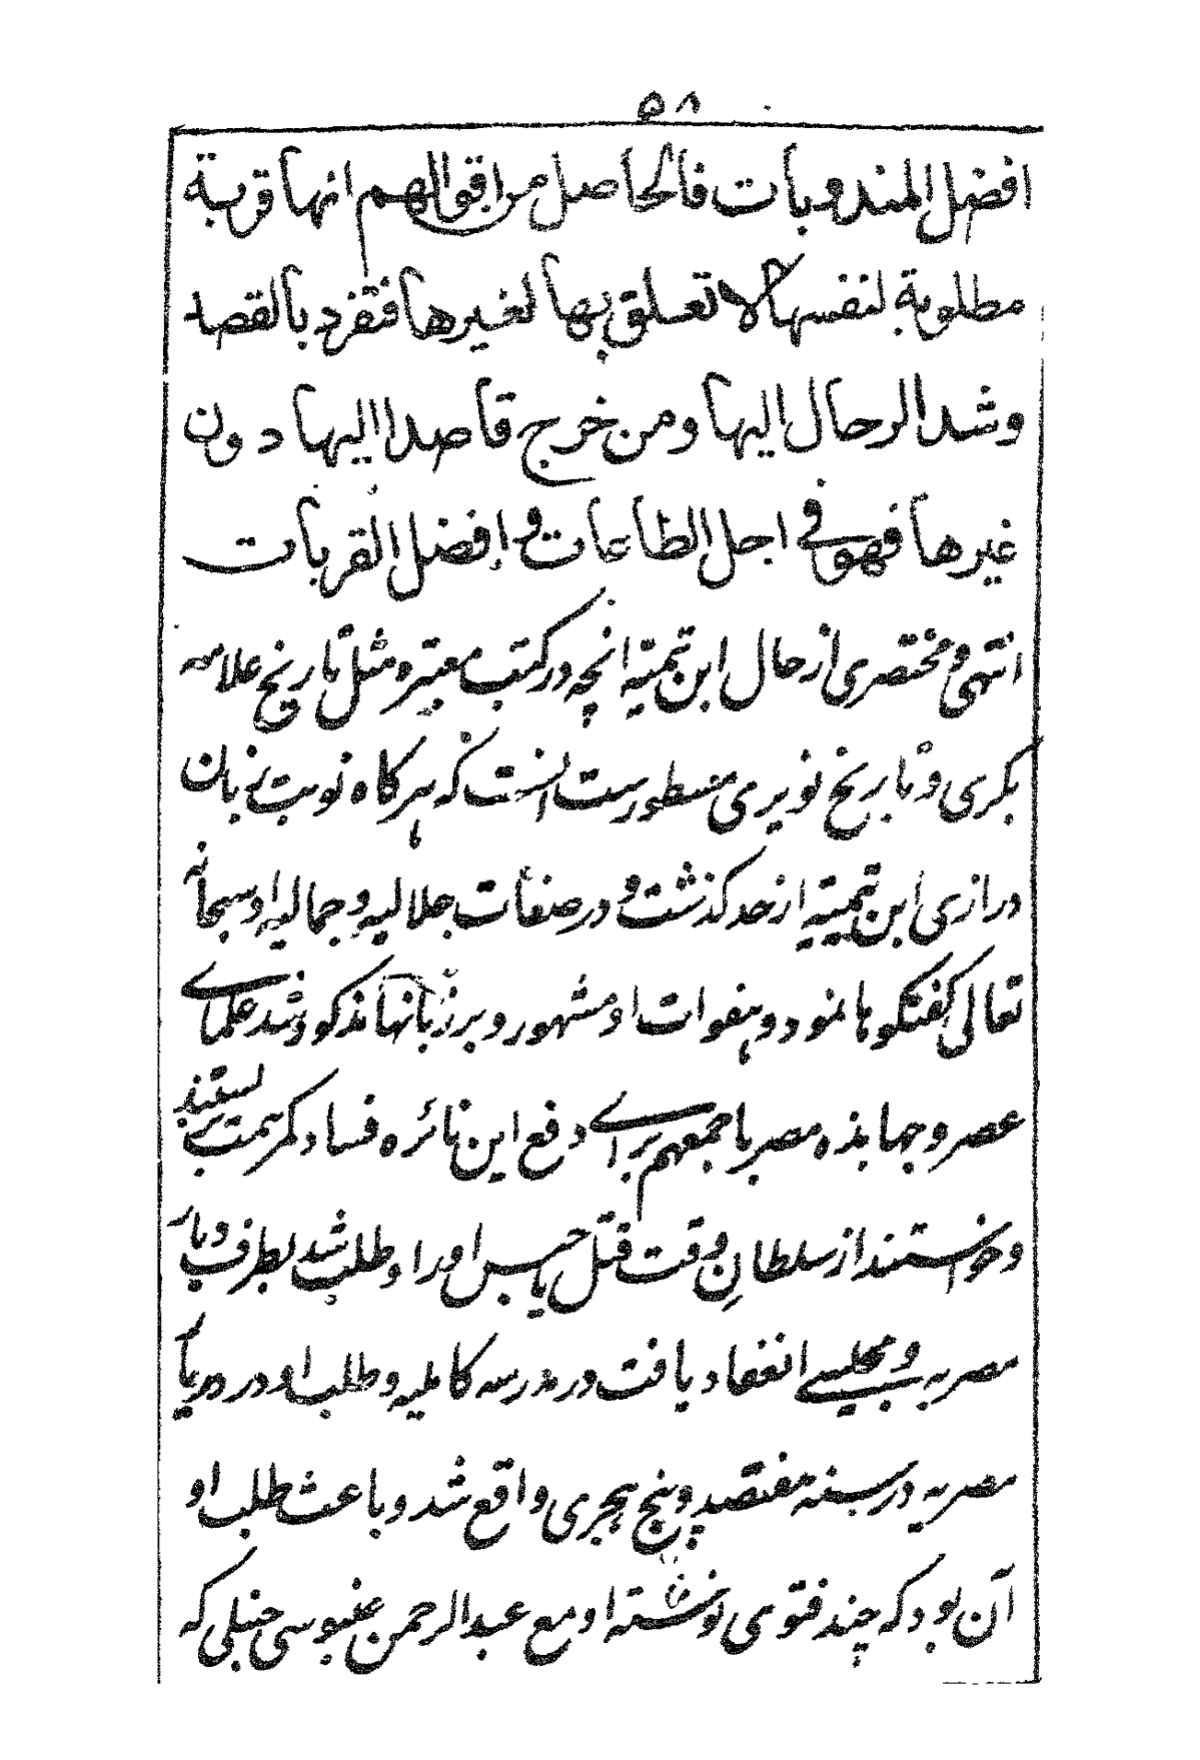 ۵۸
افضل المندوبات فالحاصل من اقوالهم انها قربة
مطلوبة لنفسها لا تعلق بها لغيرها فتفرد بالقصد
وشد الرحال اليها ومن خرج قاصدا اليها دون
غيرها فهو في اجل الطاعات و افضل القربات
انتهى و مختصری از حال ابن تیمیّه انچه در کتب معتبره مثل تاریخ علامه
بکری و تاریخ نویری مسطورست اینست که هرگاه نوبت بزبان
درازی ابن تیمیّه از حد گذشت و در صفات جلالیه و جمالیه او سبحانه
تعالی گفتگوها نمود و هفوات او مشهور و بر زبانها مذکور شد علمای
عصر و جهابذه مصر باجمعهم برای دفع این نائره فساد کمر همت بربستند
و خواستند از سلطان وقت قتل یا حبس او را و طلب شد بطرف دیار
مصریه و مجلسی انعقاد یافت در مدرسه کاملیه و طلب او در دیار
مصریه در سنه هفتصد و پنج هجری واقع شد و باعث طلب او
آن بود که چند فتوی نوشته او مع عبدالرحمن حنبلی که